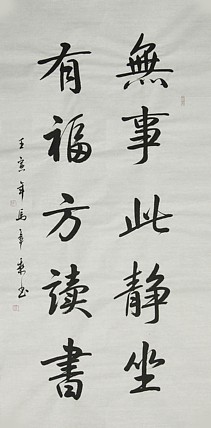 無事此靜坐
有福方讀書
壬寅年馬年書